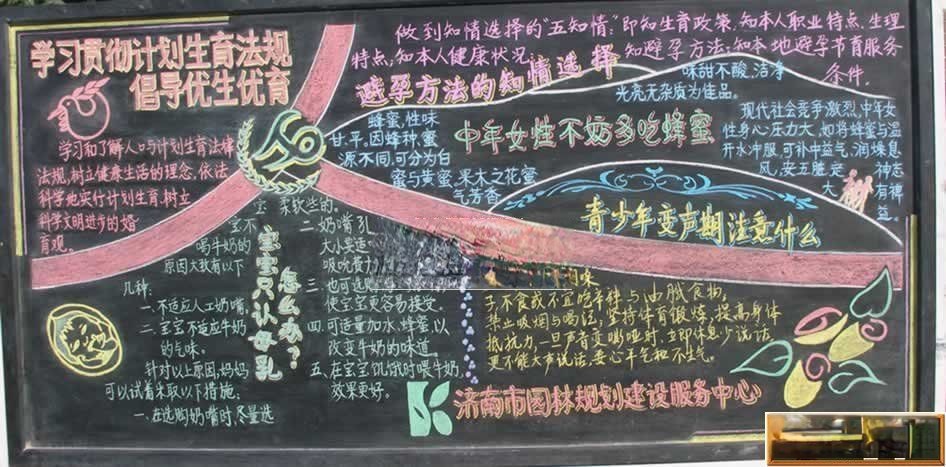 学习贯彻计划生育法规
倡导优生优育
学习和了解人口与计划生育法律
法规,树立健康生活的理念,依法
科学地实行计划生育,树立
科学文明进步的婚
育观。
做到知情选择的“五知情”即知生育政策,知本人职业特点,生理
特点,知本人健康状况,知避孕方法,知本地避孕节育服务
条件。
避孕方法的知情选择
中年女性不妨多吃蜂蜜
蜂蜜,性味
甘,平,因蜂种,蜜
源不同,可分为白
蜜与黄蜜,果木之花蜜
气芳香
味甜不酸,洁净
光亮无杂质为佳品。
现代社会竞争激烈,中年女
性身心压力大,如将蜂蜜与温
开水冲服,可补中益气,润燥息
风,安五脏,定神志
大有裨
益。
青少年变声期注意什么
子不食或不宜吃辛辣与油腻食物,
禁止吸烟与喝酒;坚持体育锻炼,提高身体
抵抗力,一旦声音变嘶哑时,立即休息少说话
更不能大声说话,要心平气和不生气。
宝宝只认母乳
怎么办?
宝宝不
喝牛奶的
原因大致有以下
几种:
一、不适应人工奶嘴。
二、宝宝不适应牛奶
的气味。
针对以上原因,妈妈
可以试着采取以下措施:
一、在选购奶嘴时,尽量选
柔软些的。
二、奶嘴孔
大小要适
吸吮费
三、也可选
使宝宝更容易接受。
四、可适量加水、蜂蜜以
改变牛奶的味道。
五、在宝宝饥饿时喂牛奶,
效果更好。
济南市园林规划建设服务中心